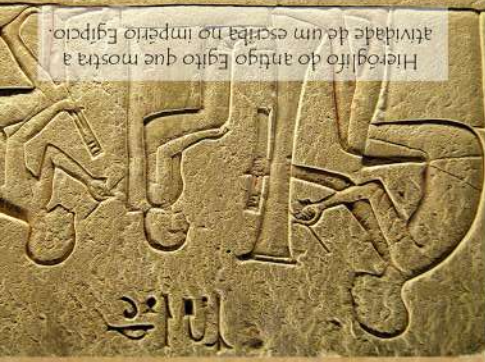 Hieróglifo do antigo Egito que mostra a
atividade de um escriba no império Egípcio.